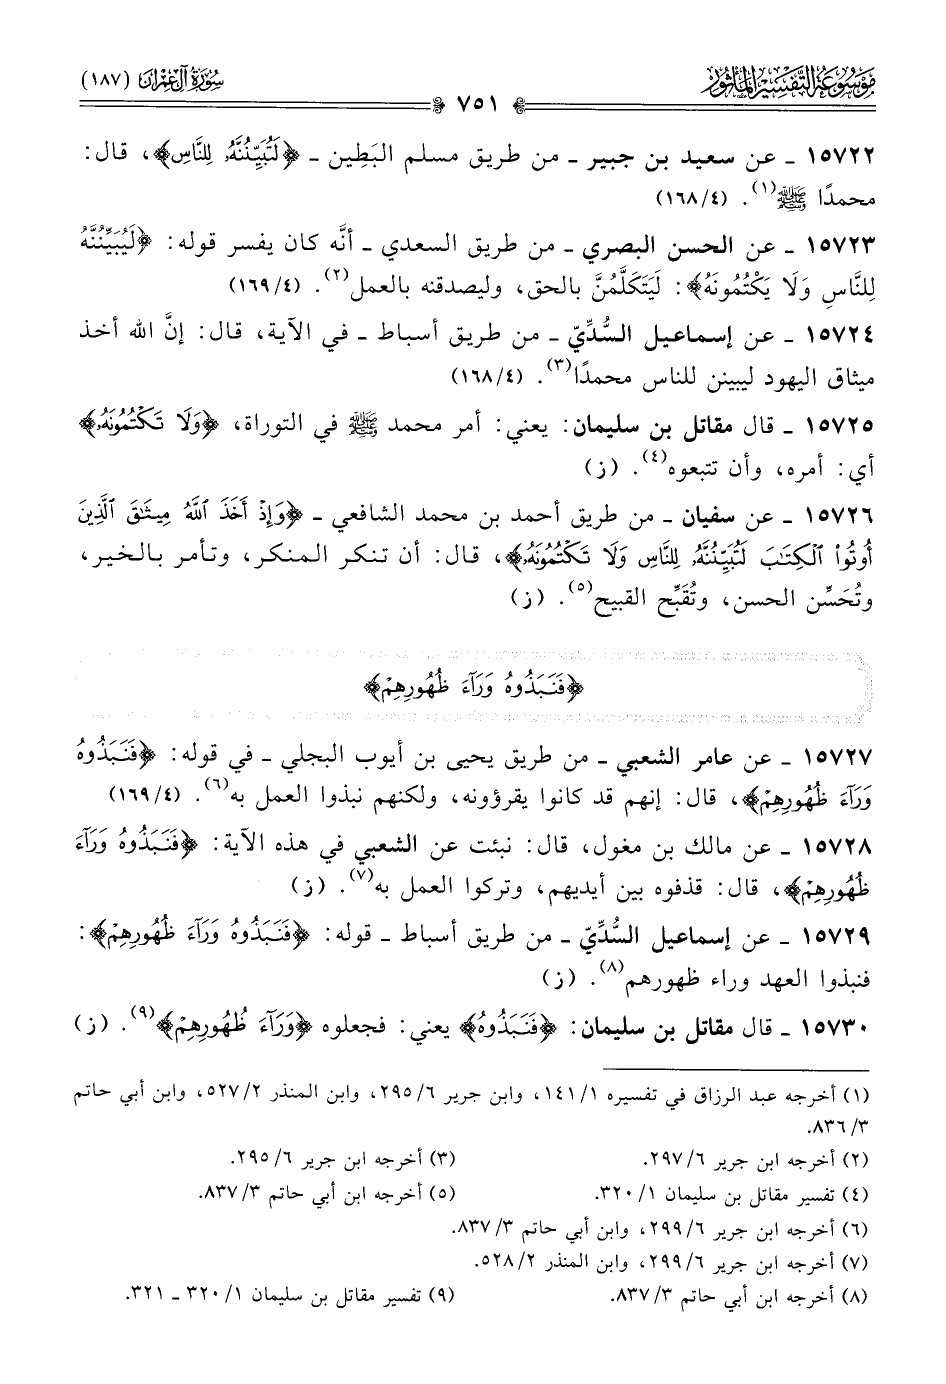 موسوعة التفسير المأثور
سورة آل عمران (١٨٧)
٧٥١
١٥٧٢٢ ـ عن سعيد بن جبير ـ من طريق مسلم البَطِين ـ ﴿لَتُبَيِّنُنَّهُۥ لِلنَّاسِ﴾، قال:
محمدًا ﷺ(١). (١٦٨/٤)
١٥٧٢٣ ـ عن الحسن البصري ـ من طريق السعدي ـ أنَّه كان يفسر قوله: ﴿لَيُبَيِّنُنَّهُ
لِلنَّاسِ وَلَا يَكْتُمُونَهُ﴾: لَيَتَكَلَّمُنَّ بالحق، وليصدقنه بالعمل(٢). (١٦٩/٤)
١٥٧٢٤ ـ عن إسماعيل السُّدِّيّ ـ من طريق أسباط ـ في الآية، قال: إنَّ الله أخذ
ميثاق اليهود ليبينن للناس محمدًا(٣). (١٦٨/٤)
١٥٧٢٥ ـ قال مقاتل بن سليمان: يعني: أمر محمد ﷺ في التوراة، ﴿وَلَا تَكْتُمُونَهُۥ﴾
أي: أمره، وأن تتبعوه(٤). (ز)
١٥٧٢٦ ـ عن سفيان ـ من طريق أحمد بن محمد الشافعي ـ ﴿وَإِذْ أَخَذَ ٱللَّهُ مِيثَٰقَ ٱلَّذِينَ
أُوتُوا۟ ٱلْكِتَٰبَ لَتُبَيِّنُنَّهُۥ لِلنَّاسِ وَلَا تَكْتُمُونَهُۥ﴾، قال: أن تنكر المنكر، وتأمر بالخير،
وتُحَسِّن الحسن، وتُقَبِّح القبيح(٥). (ز)
﴿فَنَبَذُوهُ وَرَآءَ ظُهُورِهِمْ﴾
١٥٧٢٧ ـ عن عامر الشعبي ـ من طريق يحيى بن أيوب البجلي ـ في قوله: ﴿فَنَبَذُوهُ
وَرَآءَ ظُهُورِهِمْ﴾، قال: إنهم قد كانوا يقرؤونه، ولكنهم نبذوا العمل به(٦). (١٦٩/٤)
١٥٧٢٨ ـ عن مالك بن مغول، قال: نبئت عن الشعبي في هذه الآية: ﴿فَنَبَذُوهُ وَرَآءَ
ظُهُورِهِمْ﴾، قال: قذفوه بين أيديهم، وتركوا العمل به(٧). (ز)
١٥٧٢٩ ـ عن إسماعيل السُّدِّيّ ـ من طريق أسباط ـ قوله: ﴿فَنَبَذُوهُ وَرَآءَ ظُهُورِهِمْ﴾:
فنبذوا العهد وراء ظهورهم(٨). (ز)
١٥٧٣٠ ـ قال مقاتل بن سليمان: ﴿فَنَبَذُوهُ﴾ يعني: فجعلوه ﴿وَرَآءَ ظُهُورِهِمْ﴾(٩). (ز)
(١) أخرجه عبد الرزاق في تفسيره ١/ ١٤١، وابن جرير ٦/ ٢٩٥، وابن المنذر ٢/ ٥٢٧، وابن أبي حاتم
٣/ ٨٣٦.
(٢) أخرجه ابن جرير ٦/ ٢٩٧. (٣) أخرجه ابن جرير ٦/ ٢٩٥.
(٤) تفسير مقاتل بن سليمان ١/ ٣٢٠. (٥) أخرجه ابن أبي حاتم ٣/ ٨٣٧.
(٦) أخرجه ابن جرير ٦/ ٢٩٩، وابن أبي حاتم ٣/ ٨٣٧.
(٧) أخرجه ابن جرير ٦/ ٢٩٩، وابن المنذر ٢/ ٥٢٨.
(٨) أخرجه ابن أبي حاتم ٣/ ٨٣٧. (٩) تفسير مقاتل بن سليمان ١/ ٣٢٠ ـ ٣٢١.